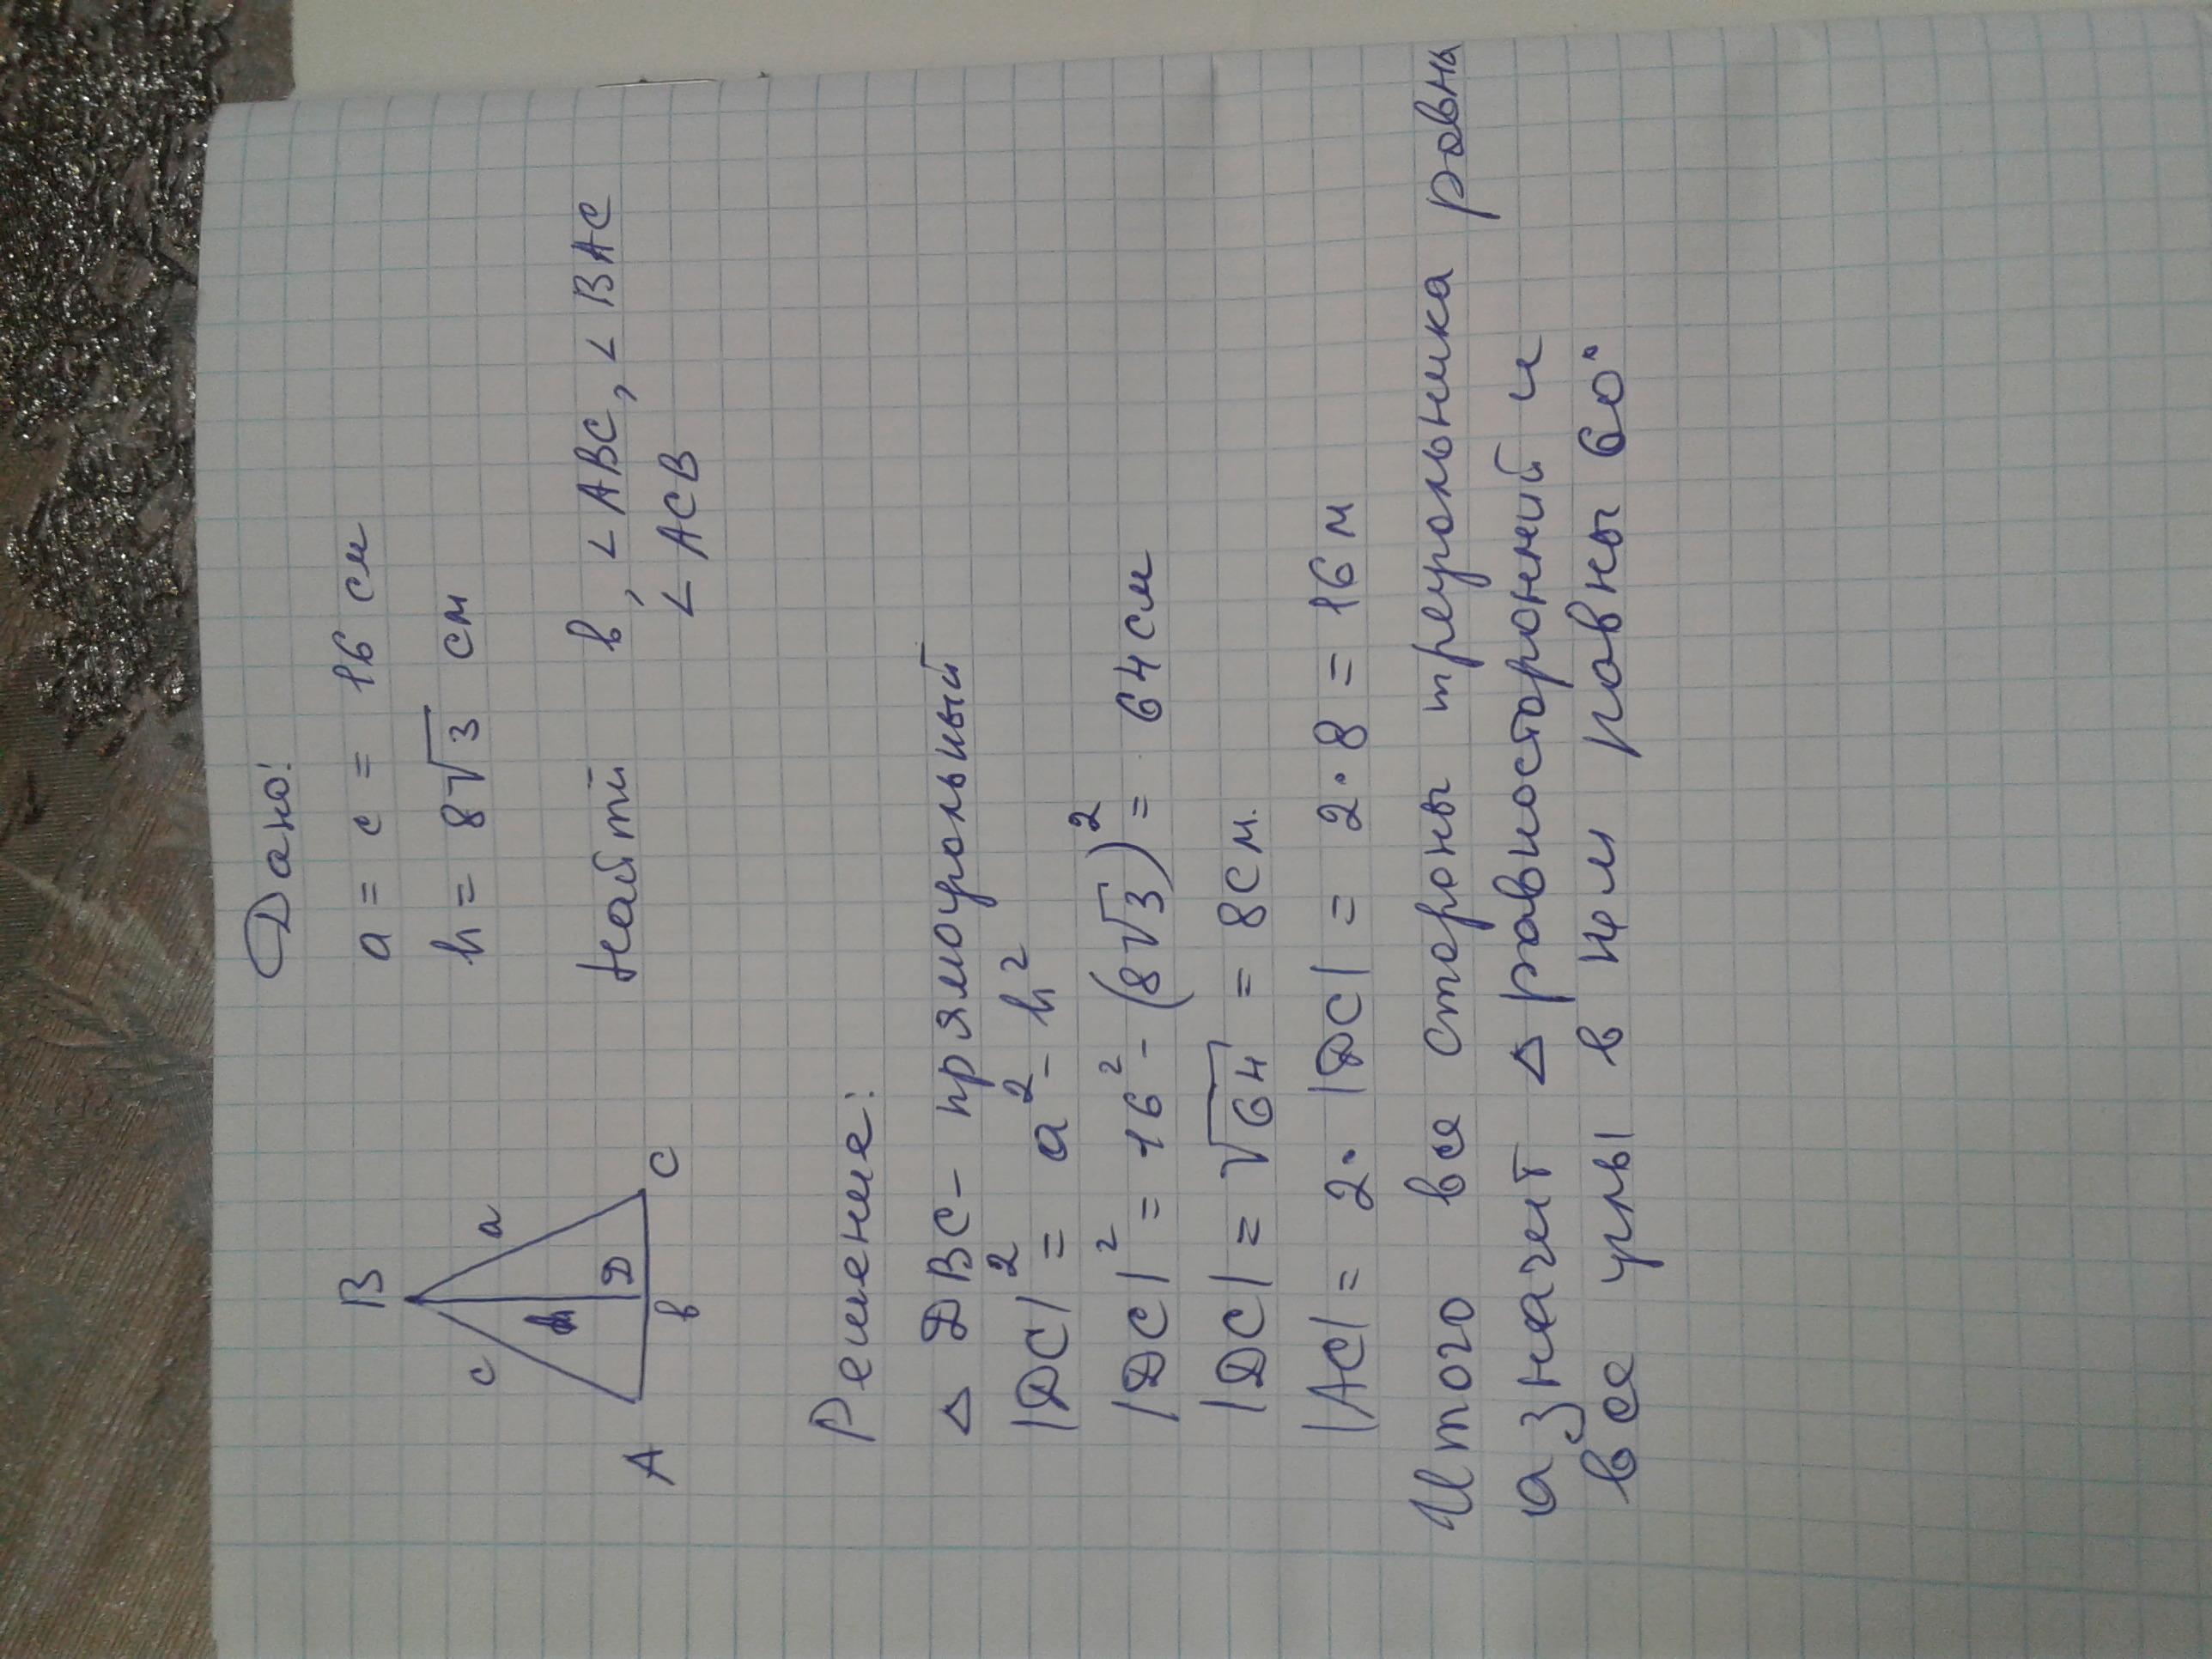 Дано:
a = c = 16 см
h = 8√3 см
Найти в, ∠ABC, ∠BAC
∠ACB
B
c a
h
D
A в C
Решение:
Δ DBC - прямоугольный
|DC|² = a² - h²
|DC|² = 16² - (8√3)² = 64 см
|DC| = √64 = 8 см.
|AC| = 2 · |DC| = 2 · 8 = 16 м
Итого все стороны треугольника равны
а значит Δ равносторонний и
все углы в нём равны 60°